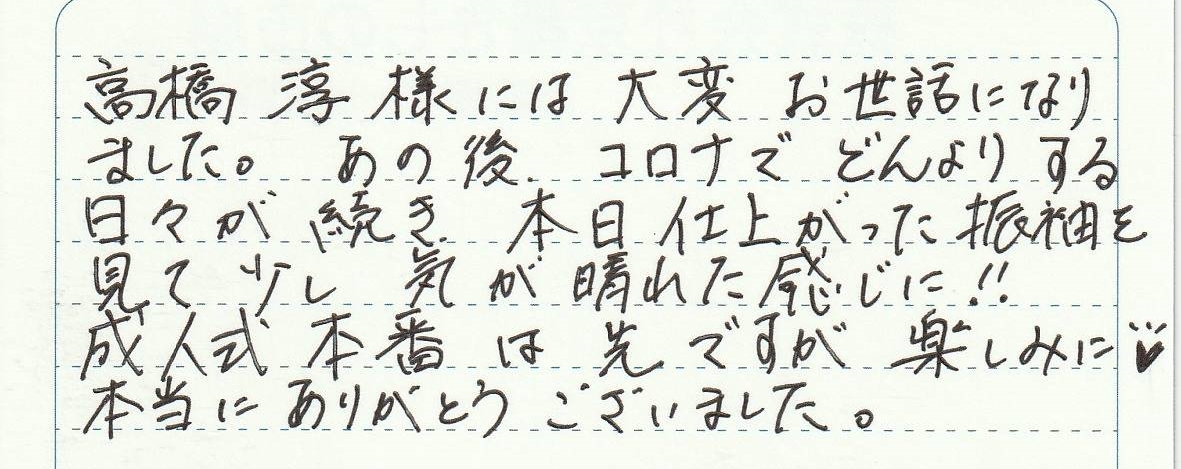 高橋 淳 様には 大変 お世話になり
ました。 あの後、 コロナで どんよりする
日々が 続き、 本日 仕上がった 振袖を
見て 少し 気が 晴れた 感じに!!
成人式 本番 は 先 ですが 楽しみに
本当に ありがとう ございました。